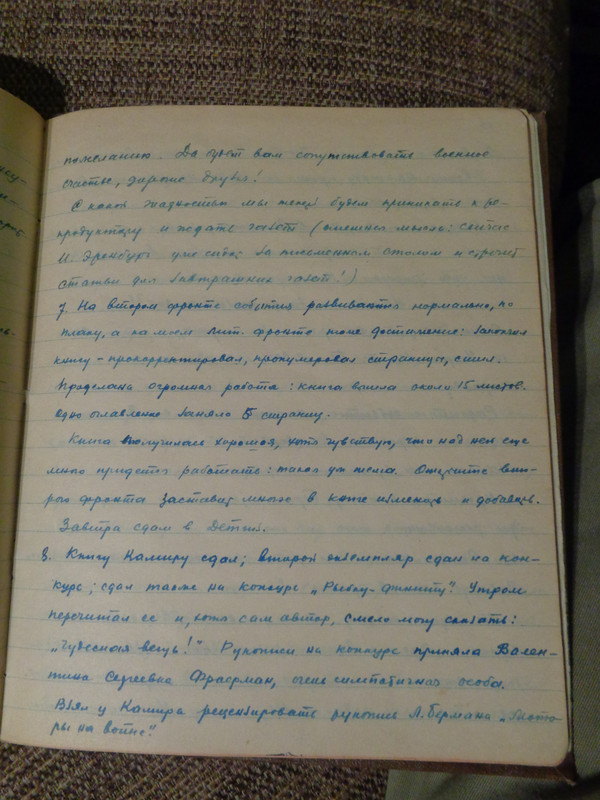 пожеланию. Да будет вам сопутствовать военное
счастье, дорогие друзья!
С какой жадностью мы теперь будем приникать к ре-
продуктору и ждать газет (смешная мысль: сейчас
И. Эренбург уже сидит за письменным столом и строчит
статьи для завтрашних газет!)
7. На втором фронте события развиваются нормально, по
плану, а на моем лит. фронте тоже достижение: закончил
книгу - прокорректировал, пронумеровал страницы, сшил.
Проделана огромная работа: книга вышла около 15 листов.
Одно оглавление заняло 5 страниц.
Книга получилась хорошая, хотя чувствую, что над ней еще
много придется работать: такая уж тема. Открытие вто-
рого фронта заставит многое в книге изменить и добавить.
Завтра сдам в Детгиз.
8. Книгу Камиру сдал; второй экземпляр сдан на кон-
курс; сдал также на конкурс „Рыбку-финиту". Утром
перечитал ее и, хотя сам автор, смело могу сказать:
„Чудесная вещь!" Рукописи на конкурс приняла Вален-
тина Сергеевна Фраерман, очень симпатичная особа.
Взял у Камира рецензировать рукопись Л. Бермана „Мото-
ры на войне".